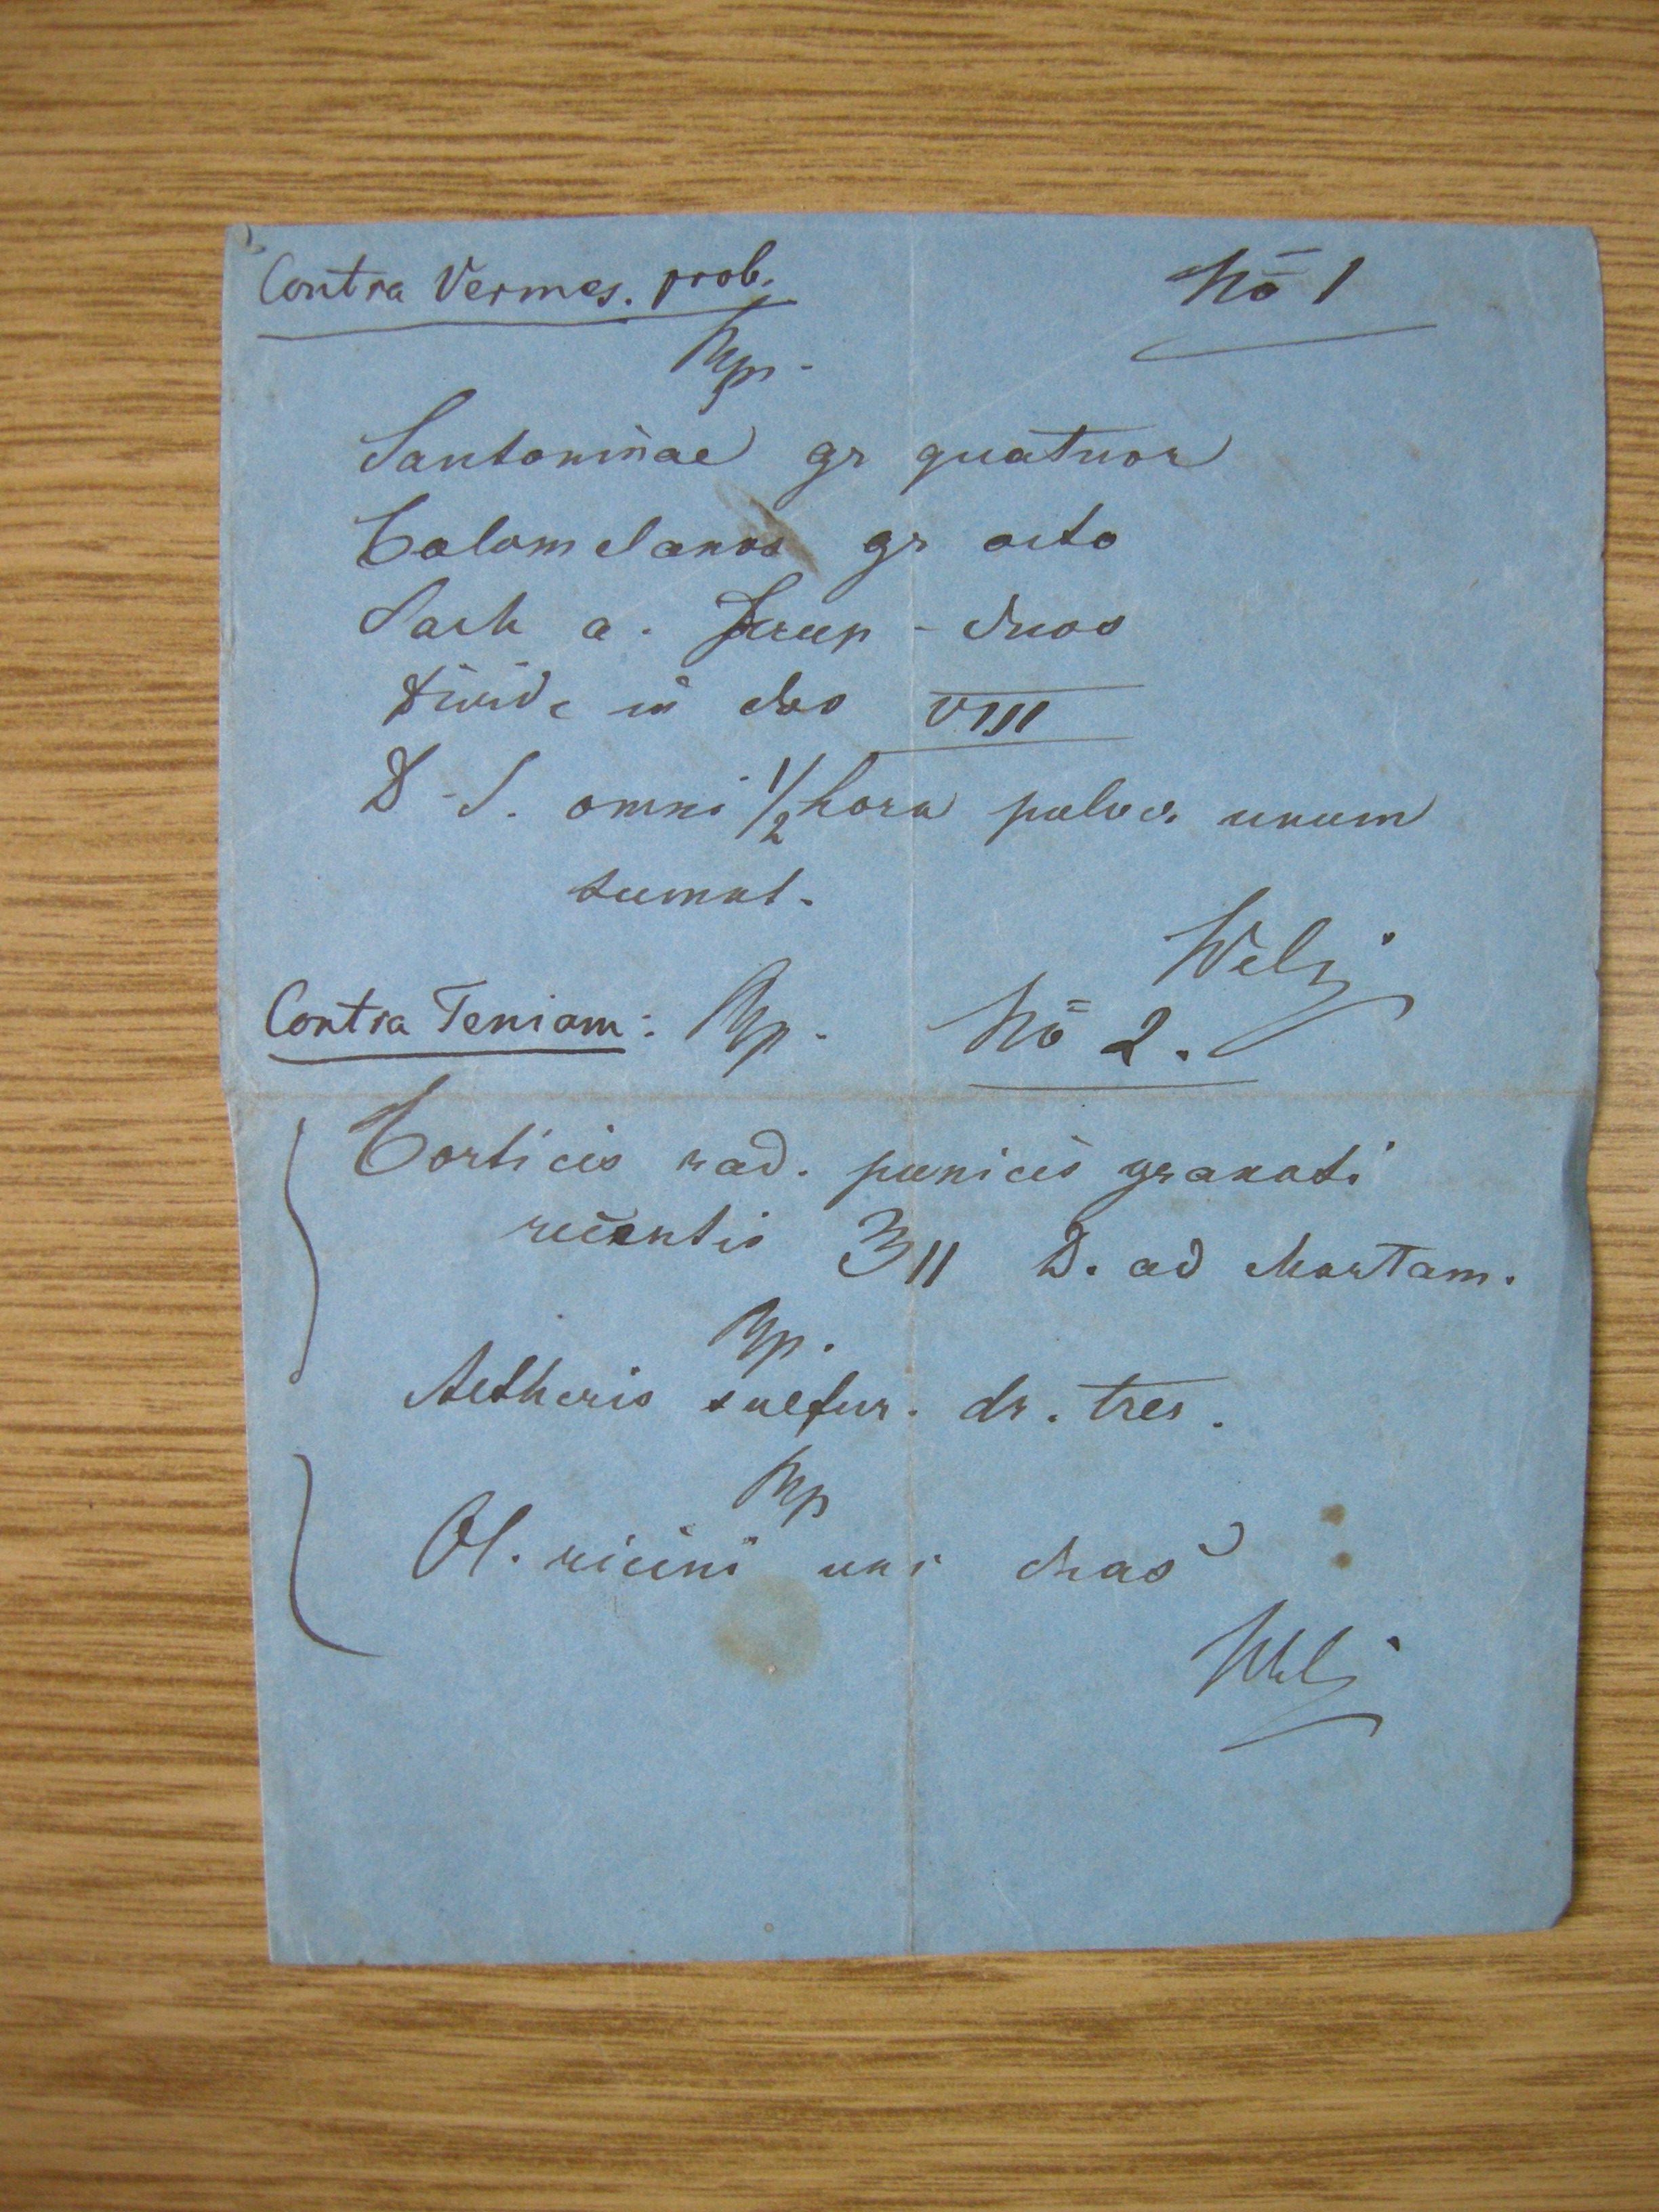 Contra Vermes. prob. No 1
Rp.
Santoninae gr quatuor
Calomelanos gr octo
Sach a. Scrup - duos
Divide in dos VIII
D. S. omni 1/2 hora pulv. unum
sumat.
Contra Teniam: Rp. No 2.
Corticis rad. punicis granati
recentis ℥II D. ad chartam.
Rp.
Aetheris sulfur. dr. tres.
Rp
Ol. ricini unc duas